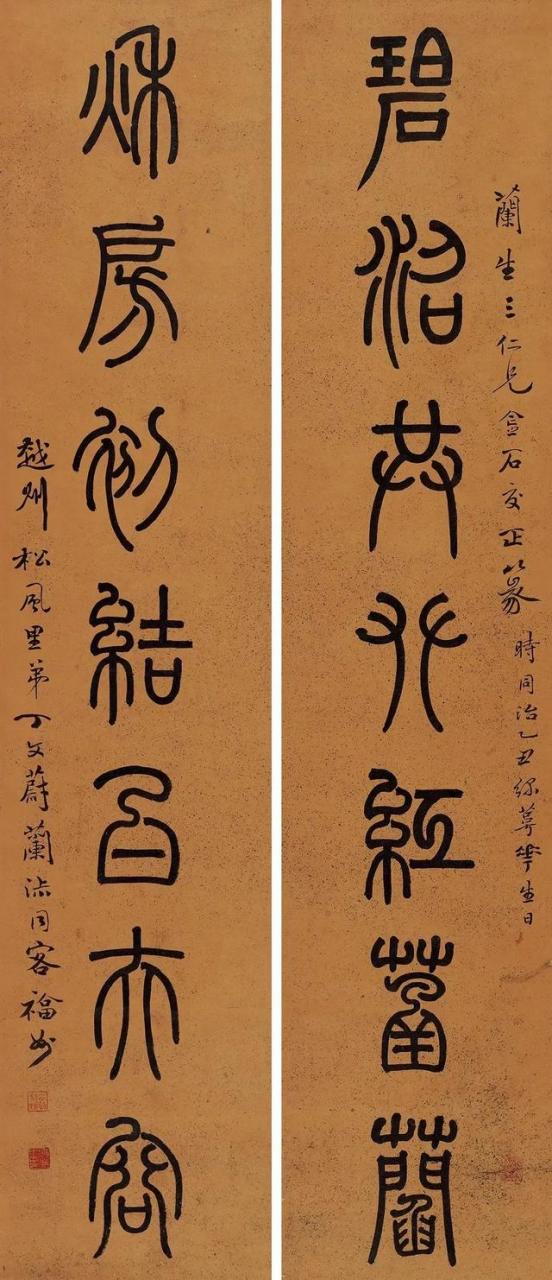 碧沼共𠬜紅菡萏
蘭生三仁兄金石交正篆
時同治乙丑綠萼華生日
秌房初結白夫容
越州松風里弟丁文蔚同客福州